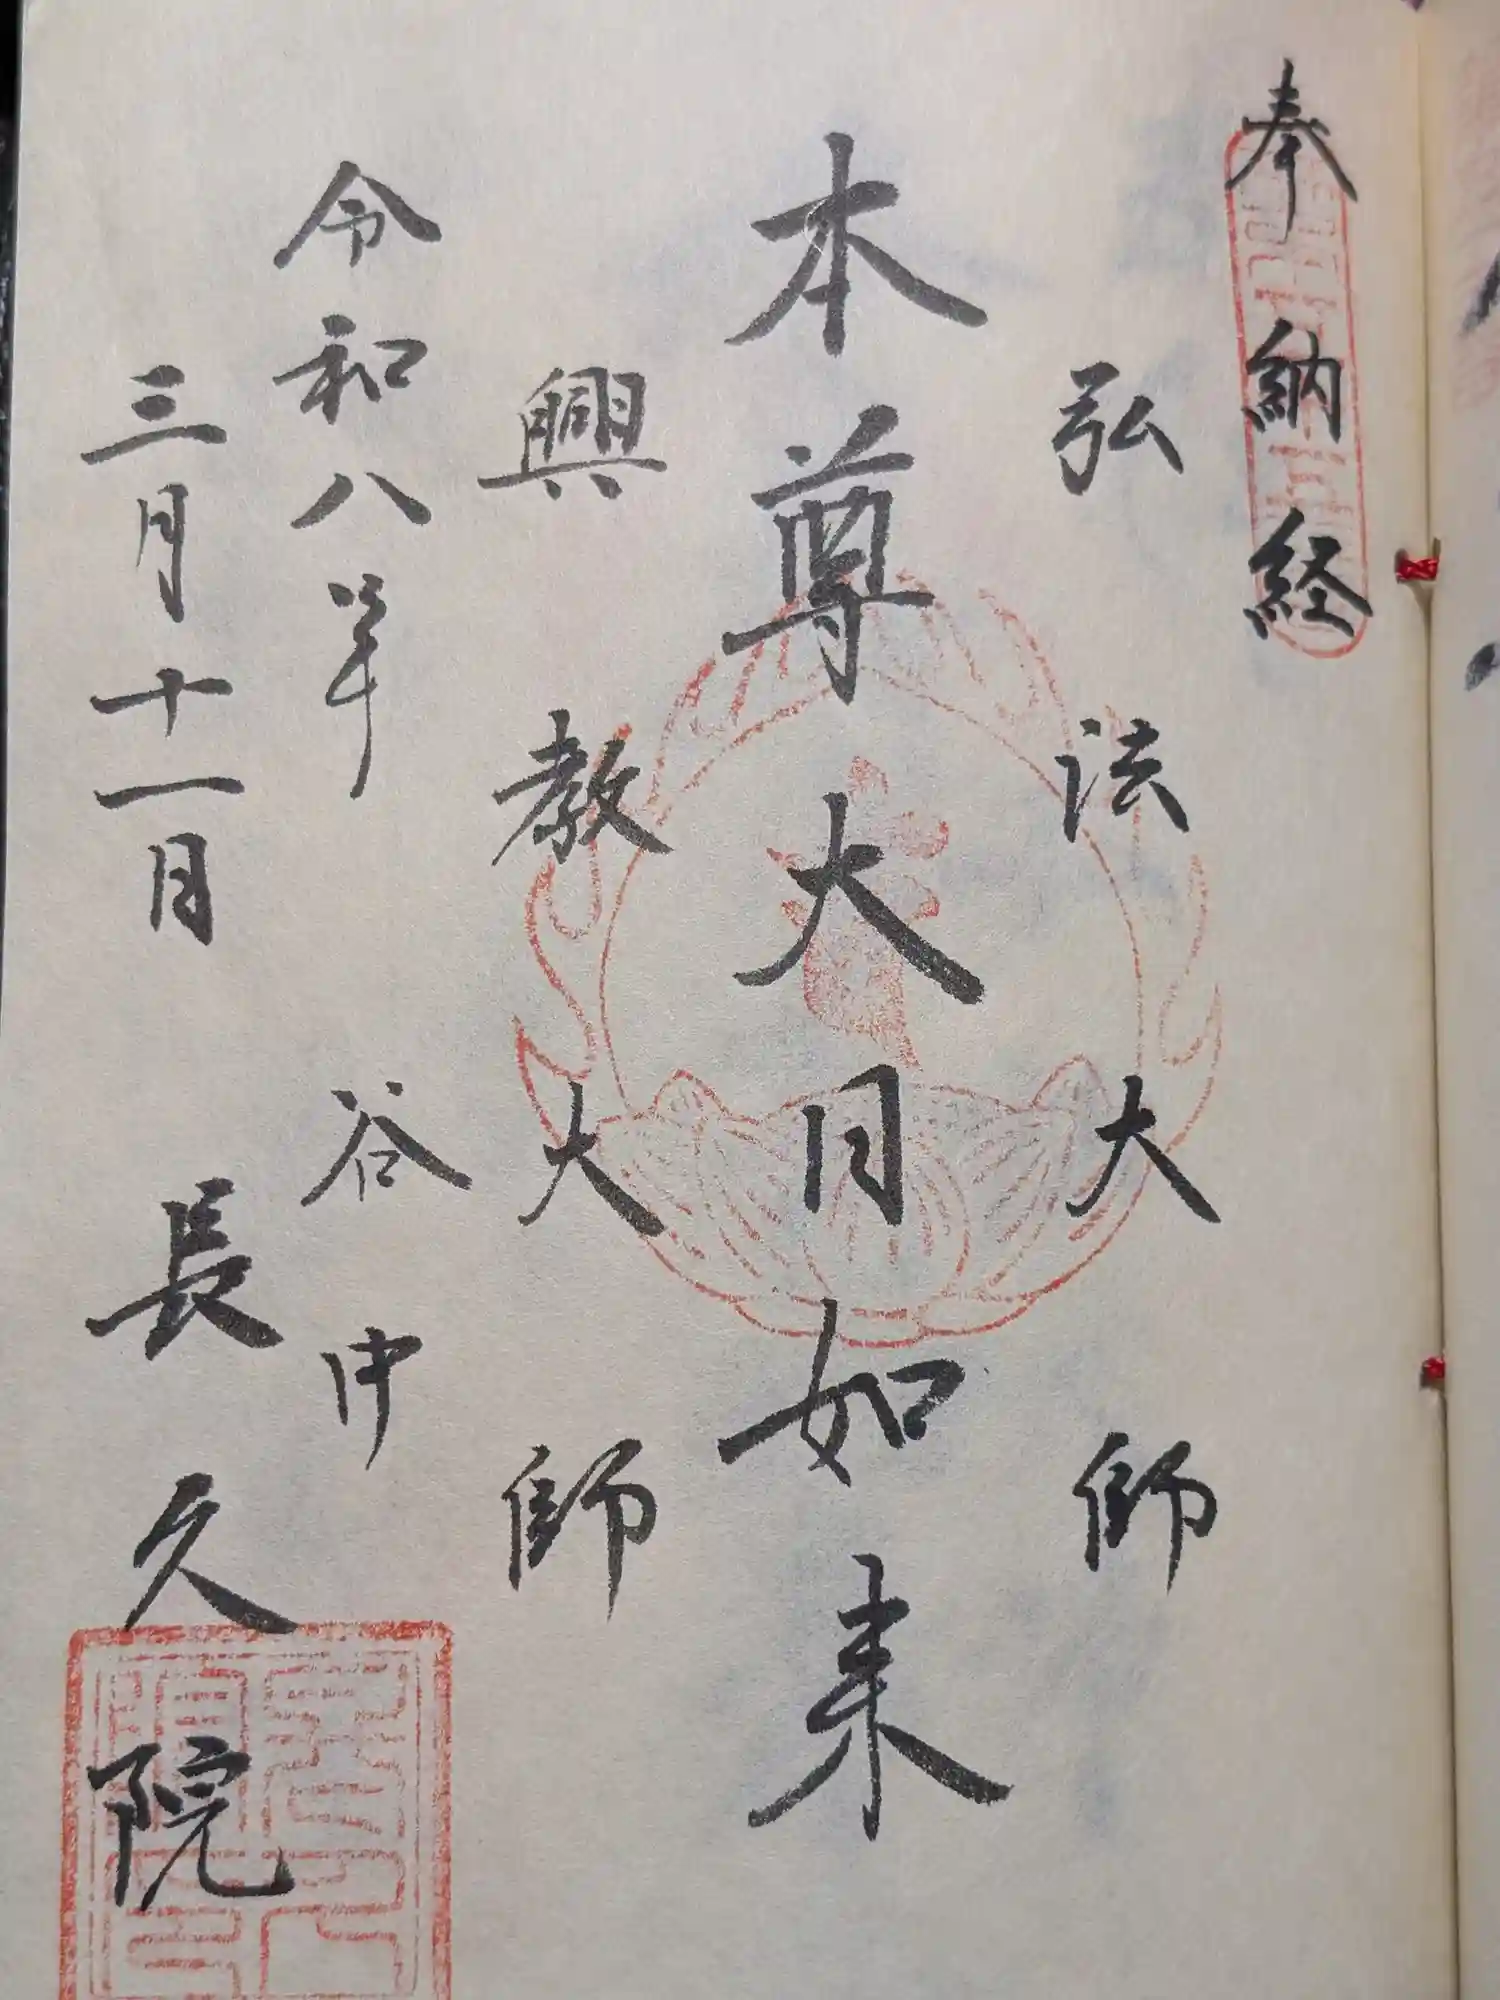 奉納経
弘法大師
本尊大日如来
興教大師
令和八年
三月十一日
谷中
長久院